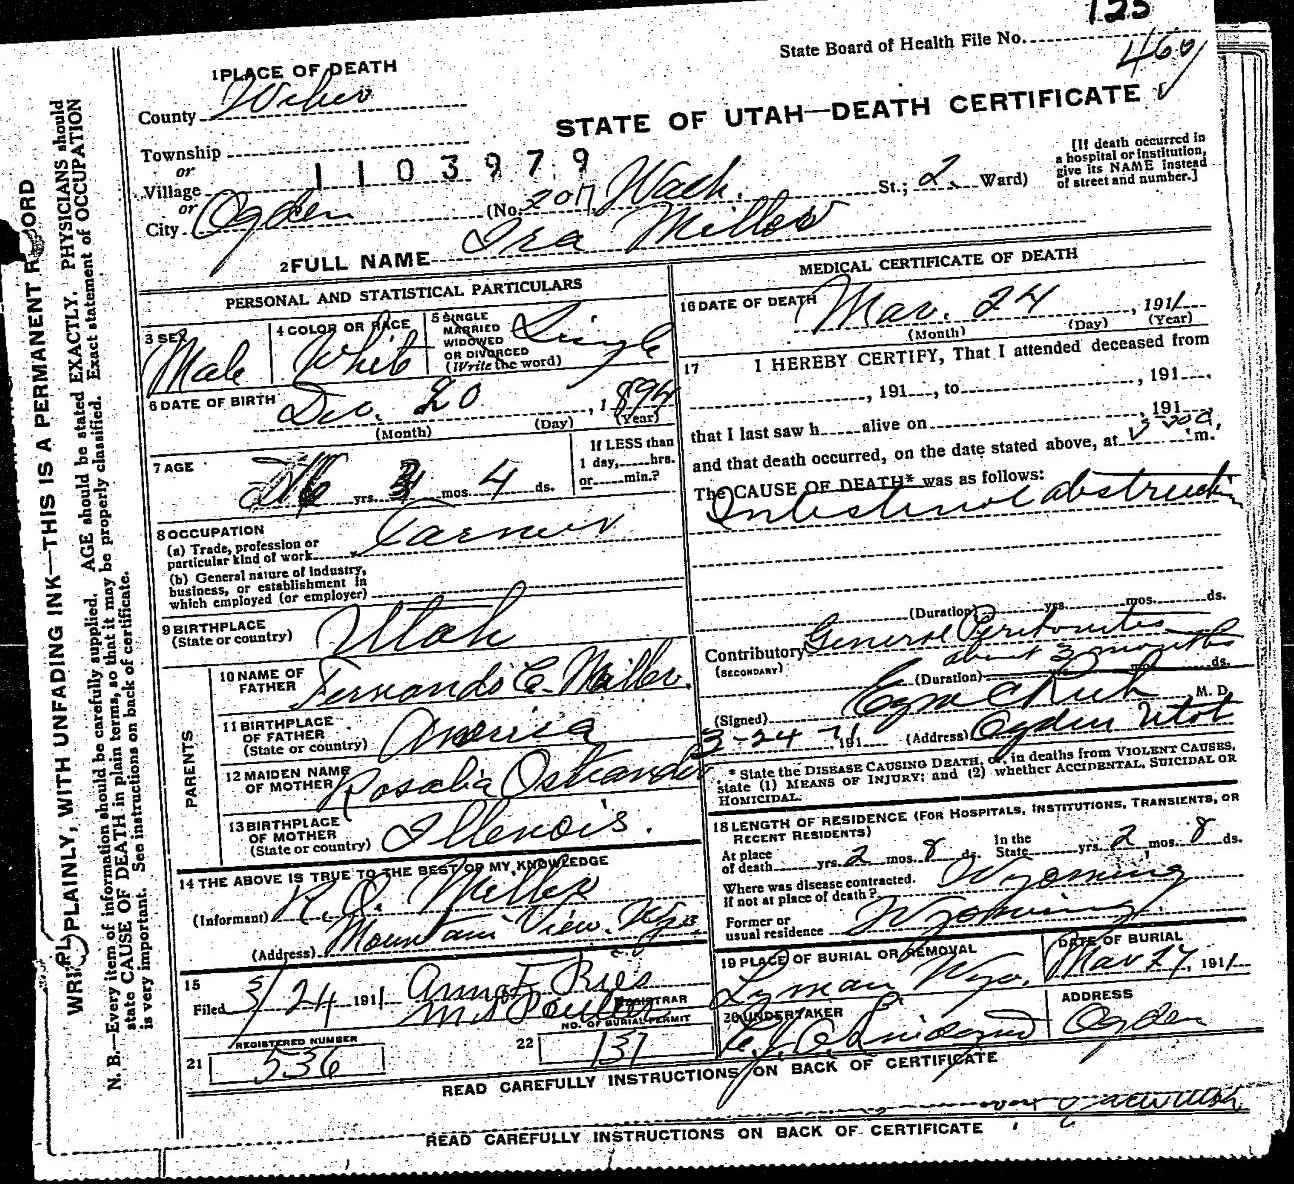 123
State Board of Health File No.
460
1 PLACE OF DEATH
County Weber
STATE OF UTAH—DEATH CERTIFICATE
Township
or
Village
1103979
or
City Ogden (No. 207 Wash. St.; 2 Ward)
[If death occurred in a hospital or institution, give its NAME instead of street and number.]
2 FULL NAME Ira Miller
PERSONAL AND STATISTICAL PARTICULARS
3 SEX Male
4 COLOR OR RACE White
5 SINGLE MARRIED WIDOWED OR DIVORCED (Write the word) Single
6 DATE OF BIRTH Dec. 20, 1894
(Month) (Day) (Year)
7 AGE 16 yrs. 3 mos. 4 ds.
If LESS than 1 day, hrs. or min.?
8 OCCUPATION
(a) Trade, profession or particular kind of work Farmer
(b) General nature of industry, business, or establishment in which employed (or employer)
9 BIRTHPLACE (State or country) Utah
PARENTS
10 NAME OF FATHER Fernando C. Miller.
11 BIRTHPLACE OF FATHER (State or country) America
12 MAIDEN NAME OF MOTHER Rosalia Ostrander
13 BIRTHPLACE OF MOTHER (State or country) Illenois.
14 THE ABOVE IS TRUE TO THE BEST OF MY KNOWLEDGE
(Informant) R. O. Miller
(Address) Mountain View. Wyo.
15
Filed 3/24 1911 Anna F. Ries
REGISTRAR
21 REGISTERED NUMBER 536
22 NO. OF BURIAL PERMIT 131
MEDICAL CERTIFICATE OF DEATH
16 DATE OF DEATH Mar. 24, 1911
(Month) (Day) (Year)
17 I HEREBY CERTIFY, That I attended deceased from
, 191 , to , 191 ,
that I last saw h alive on , 191 ,
and that death occurred, on the date stated above, at m.
The CAUSE OF DEATH* was as follows:
Intestinal abstruction
(Duration) yrs. mos. ds.
Contributory General Peritonites
(SECONDARY) about 3 months
(Duration) mos. ds.
(Signed) Ezra C Rich M. D.
3-24-11 191 (Address) Ogden Utah
* State the DISEASE CAUSING DEATH, or, in deaths from VIOLENT CAUSES, state (1) MEANS OF INJURY; and (2) whether ACCIDENTAL, SUICIDAL OR HOMICIDAL.
18 LENGTH OF RESIDENCE (FOR HOSPITALS, INSTITUTIONS, TRANSIENTS, OR RECENT RESIDENTS)
At place of death yrs. 2 mos. 8 ds. In the State yrs. 2 mos. 8 ds.
Where was disease contracted, if not at place of death? Wyoming
Former or usual residence Wyoming
19 PLACE OF BURIAL OR REMOVAL Lyman Wyo.
DATE OF BURIAL Mar 27, 1911
20 UNDERTAKER
ADDRESS Ogden
READ CAREFULLY INSTRUCTIONS ON BACK OF CERTIFICATE
READ CAREFULLY INSTRUCTIONS ON BACK OF CERTIFICATE
WRITE PLAINLY, WITH UNFADING INK—THIS IS A PERMANENT RECORD
N. B.—Every item of information should be carefully supplied. AGE should be stated EXACTLY. PHYSICIANS should
state CAUSE OF DEATH in plain terms, so that it may be properly classified. Exact statement of OCCUPATION
is very important. See instructions on back of certificate.